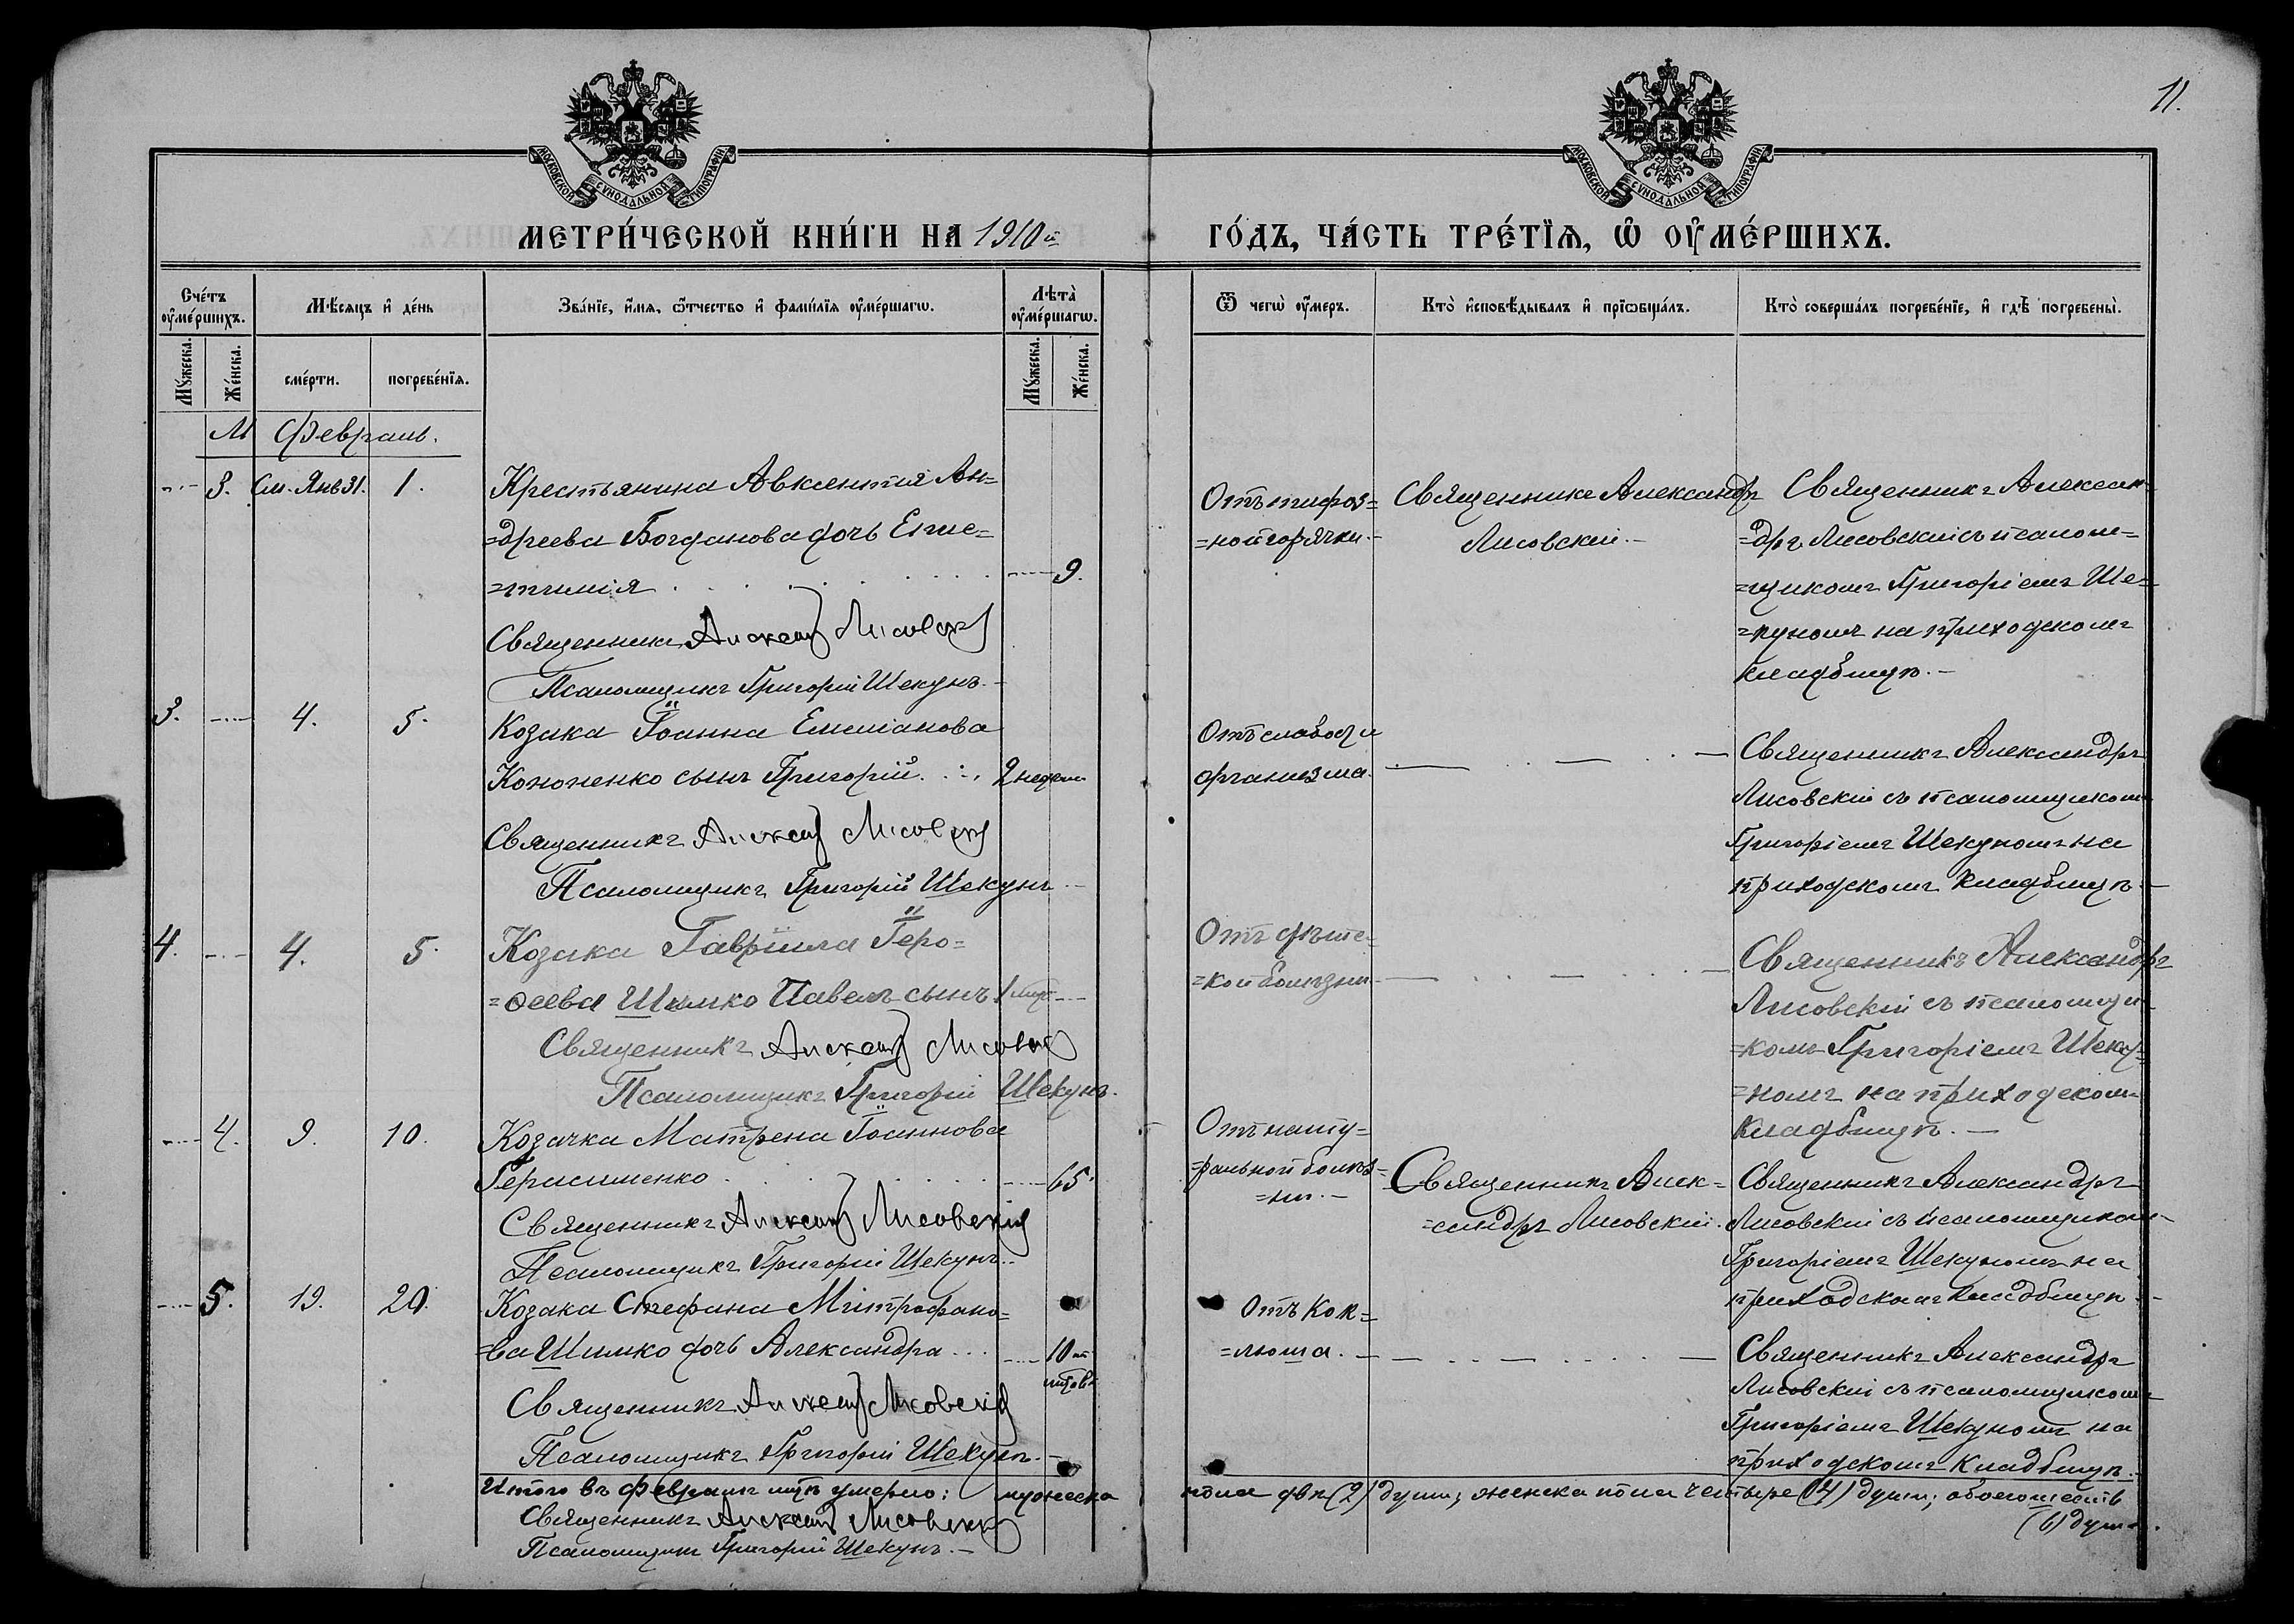 11.
МОСКОВСКОЙ СѴНОДАЛЬНОЙ ТИПОГРАФІИ
МОСКОВСКОЙ СѴНОДАЛЬНОЙ ТИПОГРАФІИ
МЕТРИ́ЧЕСКОЙ КНИ́ГИ НА 1910й
ГО́ДЪ, ЧА́СТЬ ТРЕ́ТЇѦ, Ѽ ОУ҆МЕ́РШИХЪ.
Сче́тъ оу҆ме́ршихъ.
Мѣ́сѧцъ и҆ де́нь
Зва́нїе, и҆́мѧ, ѻ҆́тчество и҆ фами́лїѧ оу҆ме́ршагѡ.
Лѣта̀ оу҆ме́ршагѡ.
Ѿ чегѡ̀ оу҆́меръ.
Кто̀ и҆сповѣ́дывалъ и҆ прїѡбща́лъ.
Кто̀ соверша́лъ погребе́нїе, и҆ гдѣ̀ погребены̀.
Мꙋ́жеска.
Же́нска.
сме́рти.
погребе́нїѧ.
Мꙋ́жеска.
Же́нска.
М Февраль.
3. См. Янв 31. 1.
Крестьянина Авксентія Ан=
=дреева Богданова дочь
=тимія 9.
Священникъ Александ Лисовскій
Псаломщикъ Григорій Шекунъ.-
Отъ тифоз=
=ной горячки.-
Священникъ Александръ
Лисовскій.-
Священникъ Алексан=
=дръ Лисовскій съ псалом=
=щикомъ Григоріемъ Ше=
=куномъ на приходскомъ
кладбищѣ.-
3. 4. 5.
Козака Іоанна Емиліанова
Кононенко сынъ Григорій. 2 недели
Священникъ Александ Лисовскій
Псаломщикъ Григорій Шекунъ.-
Отъ слабости
организма.
Священникъ Александръ
Лисовскій съ псаломщикомъ
Григоріемъ Шекуномъ на
приходскомъ кладбищѣ.-
4. 4. 5.
Козака Гавріила Іеро=
=ѳеева Шимко Павелъ сынъ 1
Священникъ Александ Лисовскій
Псаломщикъ Григорій Шекунъ.
Отъ дѣтс=
=кой болѣзни.
Священникъ Александръ
Лисовскій съ псаломщи=
=комъ Григоріемъ Шеку=
=номъ на приходскомъ
кладбищѣ.-
4. 9. 10.
Козачка Матрена Іоаннова
Герасименко 65.
Священникъ Александ Лисовскій
Псаломщикъ Григорій Шекунъ.-
Отъ нату=
=ральной болѣз=
=ни.-
Священникъ Алек=
=сандръ Лисовскій.
Священникъ Александръ
Лисовскій съ псаломщикомъ
Григоріемъ Шекуномъ на
приходскомъ кладбищѣ.-
5. 19. 20.
Козака Стефана Митрофано=
=ва Шимко дочь Александра 10
Священникъ Александ Лисовскій
Псаломщикъ Григорій Шекунъ.-
Отъ Кок=
=люша.-
Священникъ Александръ
Лисовскій съ псаломщикомъ
Григоріемъ Шекуномъ на
приходскомъ кладбищѣ.
Итого въ Февралѣ мцѣ умерло: мужеска пола двѣ (2) души; женска пола четыре (4) души; обоего шесть
(6) душъ.
Священникъ Александ Лисовскій
Псаломщикъ Григорій Шекунъ.-